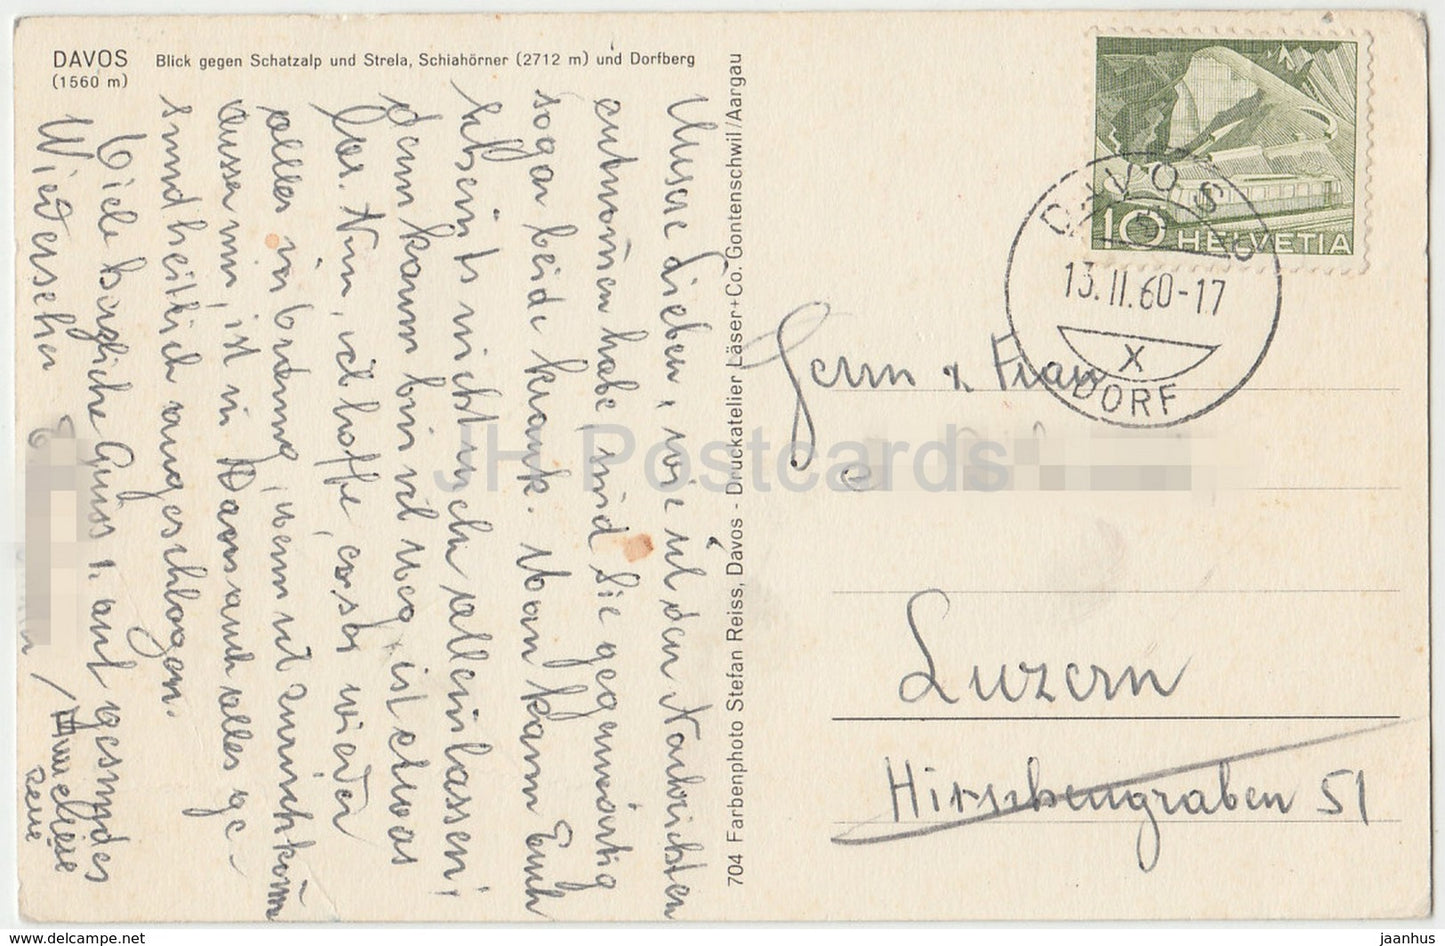 DAVOS
(1560 m)
Blick gegen Schatzalp und Strela, Schiahörner (2712 m) und Dorfberg
Unsere Lieben, wie ich den Nachrichten
entnommen habe, sind Sie gegenwärtig
sogar beide krank. Man kann Euch
scheints nicht mehr allein lassen;
denn kaum bin ich weg, ist etwas
los. Nun, ich hoffe, es ist wieder
alles in Ordnung, wenn ich zurückkomme
ausser mir, ist in Davos auch alles ge-
sundheitlich angeschlagen.
Viele herzliche Grüsse u. auf gesundes
Wiedersehen
704 Farbenphoto Stefan Reiss, Davos - Druckatelier Läser+Co. Gontenschwil/Aargau
10 HELVETIA
DAVOS
13.II.60-17
X
DORF
Herrn & Frau
Luzern
Hirschengraben 51
JH Postcards
www.delcampe.net
jaanhus